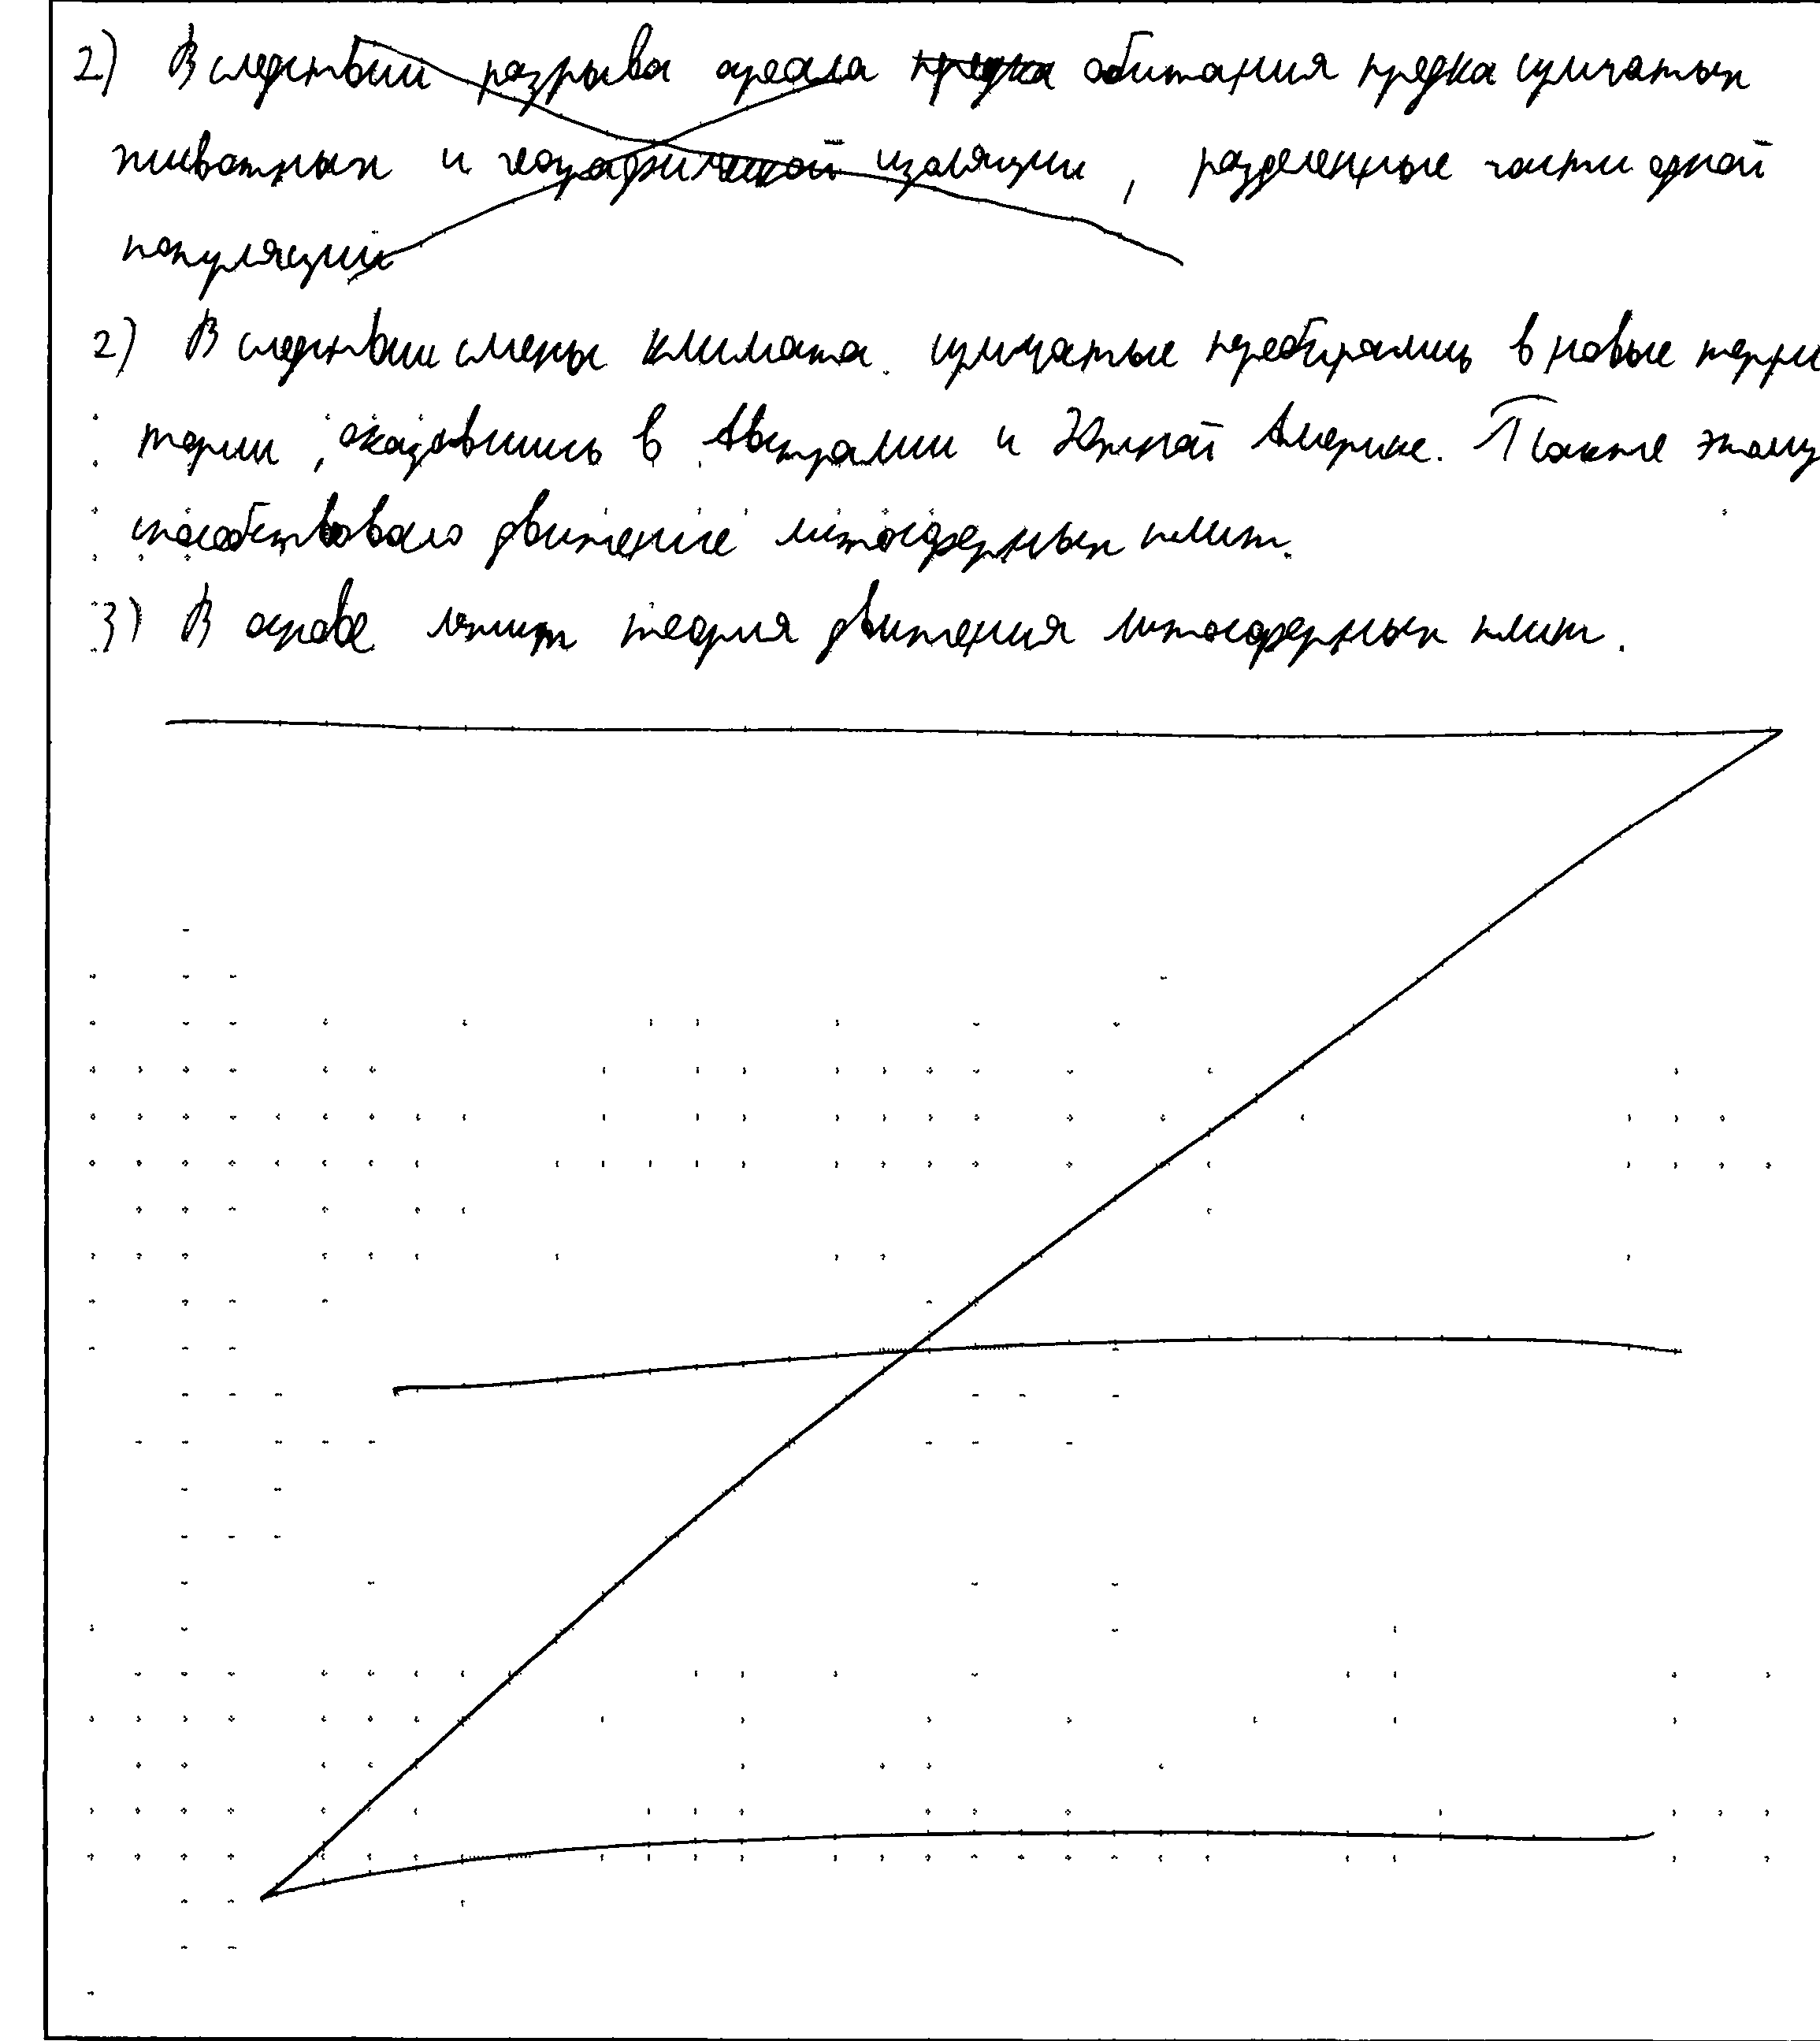 2) В следствии разрыва ареала предка обитания предка сумчатых
животных и географической изоляции, разделенные части одной
популяции
2) В следствии смены климата. сумчатые перебирались в новые терри
тории, оказавшись в Австралии и Южной Америке. Также этому
способствовало движение литосферных плит.
3) В основе лежит теория движения литосферных плит.